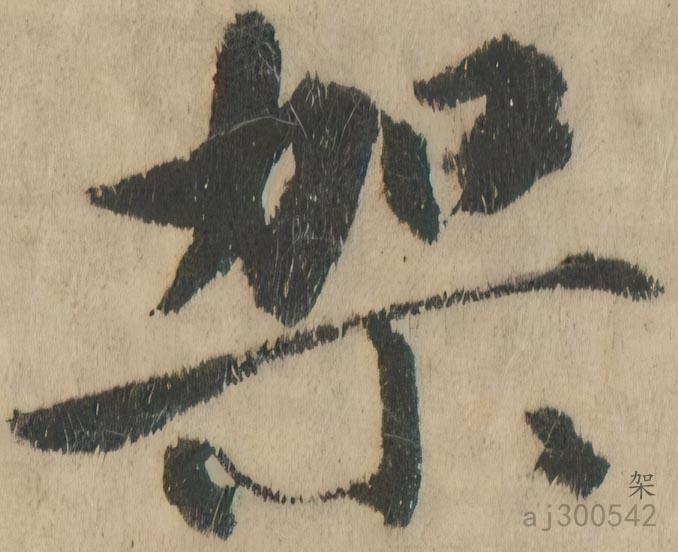 架
架
aj300542